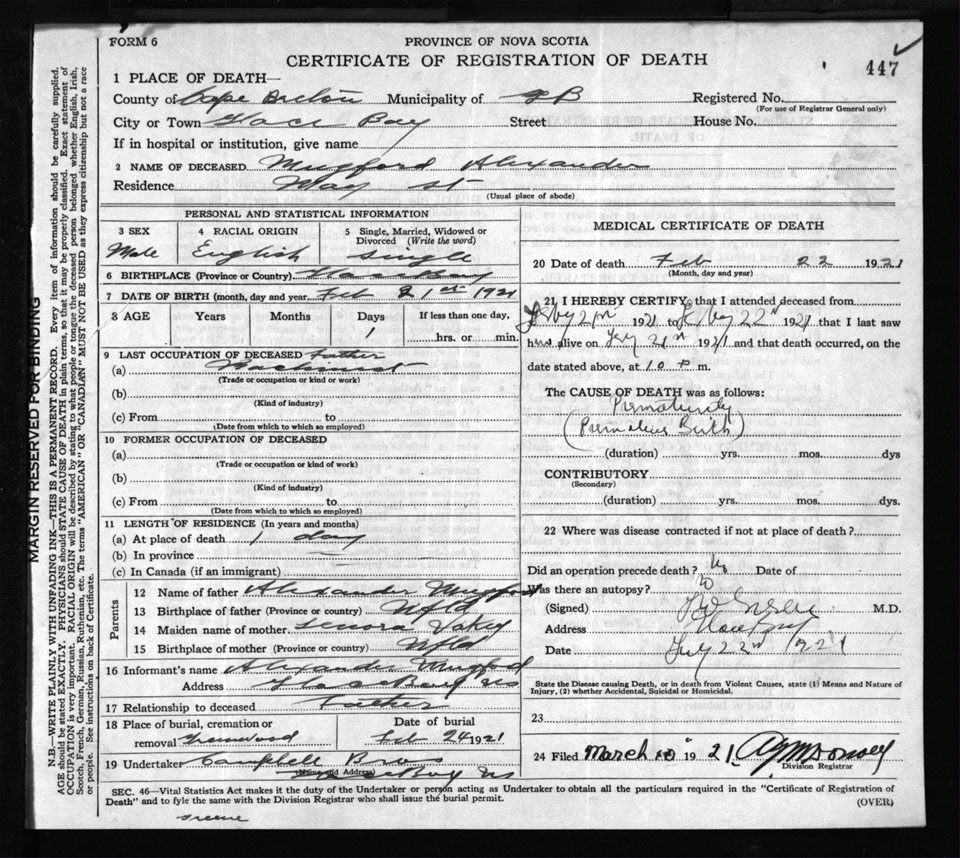 FORM 6
PROVINCE OF NOVA SCOTIA
CERTIFICATE OF REGISTRATION OF DEATH
447
1 PLACE OF DEATH—
County of Cape Breton Municipality of GB Registered No.
(For use of Registrar General only)
City or Town Glace Bay Street House No.
If in hospital or institution, give name
2 NAME OF DECEASED Mugford Alexander
Residence May St
(Usual place of abode)
PERSONAL AND STATISTICAL INFORMATION
3 SEX 4 RACIAL ORIGIN 5 Single, Married, Widowed or Divorced (Write the word)
Male English Single
6 BIRTHPLACE (Province or Country) Glace Bay
7 DATE OF BIRTH (month, day and year) Feb 21st 1921
8 AGE Years Months Days If less than one day,
1 hrs. or min.
9 LAST OCCUPATION OF DECEASED Father
(a) Machinist
(Trade or occupation or kind or work)
(b)
(Kind of industry)
(c) From to
(Date from which to which so employed)
10 FORMER OCCUPATION OF DECEASED
(a)
(Trade or occupation or kind of work)
(b)
(Kind of industry)
(c) From to
(Date from which to which so employed)
11 LENGTH OF RESIDENCE (In years and months)
(a) At place of death 1 day
(b) In province
(c) In Canada (if an immigrant)
Parents
12 Name of father Alexander Mugford
13 Birthplace of father (Province or country) Nfld
14 Maiden name of mother
15 Birthplace of mother (Province or country) Nfld
16 Informant's name Alexander Mugford
Address Glace Bay NS
17 Relationship to deceased Father
18 Place of burial, cremation or removal Greenwood
Date of burial Feb 24 1921
19 Undertaker Campbell Bros
(Name and Address) Glace Bay NS
MEDICAL CERTIFICATE OF DEATH
20 Date of death Feb 22 1921
(Month, day and year)
21 I HEREBY CERTIFY, that I attended deceased from
1921 to 22nd 1921 that I last saw
him alive on 21st 1921 and that death occurred, on the
date stated above, at 10 P m.
The CAUSE OF DEATH was as follows:
Prematurity
(Premature Birth)
(duration) yrs. mos. dys
CONTRIBUTORY
(Secondary)
(duration) yrs. mos. dys.
22 Where was disease contracted if not at place of death?
Did an operation precede death? No Date of
Was there an autopsy? No
(Signed) M.D.
Address Glace Bay
Date 22nd 1921
State the Disease causing Death, or in death from Violent Causes, state (1) Means and Nature of
Injury, (2) whether Accidental, Suicidal or Homicidal.
23
24 Filed March 10" 1921
Division Registrar
SEC. 46—Vital Statistics Act makes it the duty of the Undertaker or person acting as Undertaker to obtain all the particulars required in the "Certificate of Registration of
Death" and to fyle the same with the Division Registrar who shall issue the burial permit.
(OVER)
MARGIN RESERVED FOR BINDING
N.B.—WRITE PLAINLY WITH UNFADING INK—THIS IS A PERMANENT RECORD. Every item of information should be carefully supplied.
AGE should be stated EXACTLY. PHYSICIANS should STATE CAUSE OF DEATH in plain terms, so that it may be properly classified. Exact statement of
OCCUPATION is very important. RACIAL ORIGIN will be described by stating to what people or tongue the deceased person belonged, whether English, Irish,
Scotch, French, German, Russian, Ruthenian, etc. The terms "AMERICAN" OR "CANADIAN" MUST NOT BE USED as they express citizenship but not a race
or people. See instructions on back of Certificate.